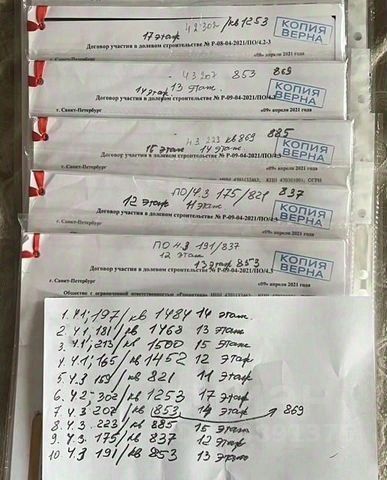 42302/кв 1253
17 этаж
КОПИЯ ВЕРНА
Договор участия в долевом строительстве № Р-08-04-2021/ПО/4.2-3
г. Санкт-Петербург
«08» апреля 2021 года
43 207 853 869
14 этаж 13 этаж
КОПИЯ ВЕРНА
Договор участия в долевом строительстве № Р-09-04-2021/ПО/4.
г. Санкт-Петербург
«09» апреля 2021 года
43 223 кв 869 885
15 этаж 14 этаж
КОПИЯ ВЕРНА
Договор участия в долевом строительстве № Р-09-04-2021/ПО/4.3
г. Санкт-Петербург
«09» апреля 2021 года
ПО/4.3 175/821 837
12 этаж 11 этаж
КОПИЯ ВЕРНА
Договор участия в долевом строительстве № Р-09-04-2021/ПО/4.
г. Санкт-Петербург
«09» апреля 2021 года
ПО 4.3 191/837
12 этаж
13 этаж 853
КОПИЯ ВЕРНА
Договор участия в долевом строительстве № Р-09-04-2021/ПО/4.3
г. Санкт-Петербург
«09» апреля 2021 года
Общество с ограниченной ответственностью
1. 4.1; 197/кв 1484 14 этаж.
2. 4.1; 181/кв 1468 13 этаж
3. 4.1; 213/кв 1500 15 этаж
4. 4.1; 165/кв 1452 12 этаж
5. 4.3 159/кв 821 11 этаж
6. 42; 302/кв 1253 17 этаж
7. 4.3 207/кв 853 14 этаж 869
8. 4.3. 223/кв 885 15 этаж
9. 4.3. 175/кв 837 12 этаж
10 4.3 191/кв 853 13 этаж